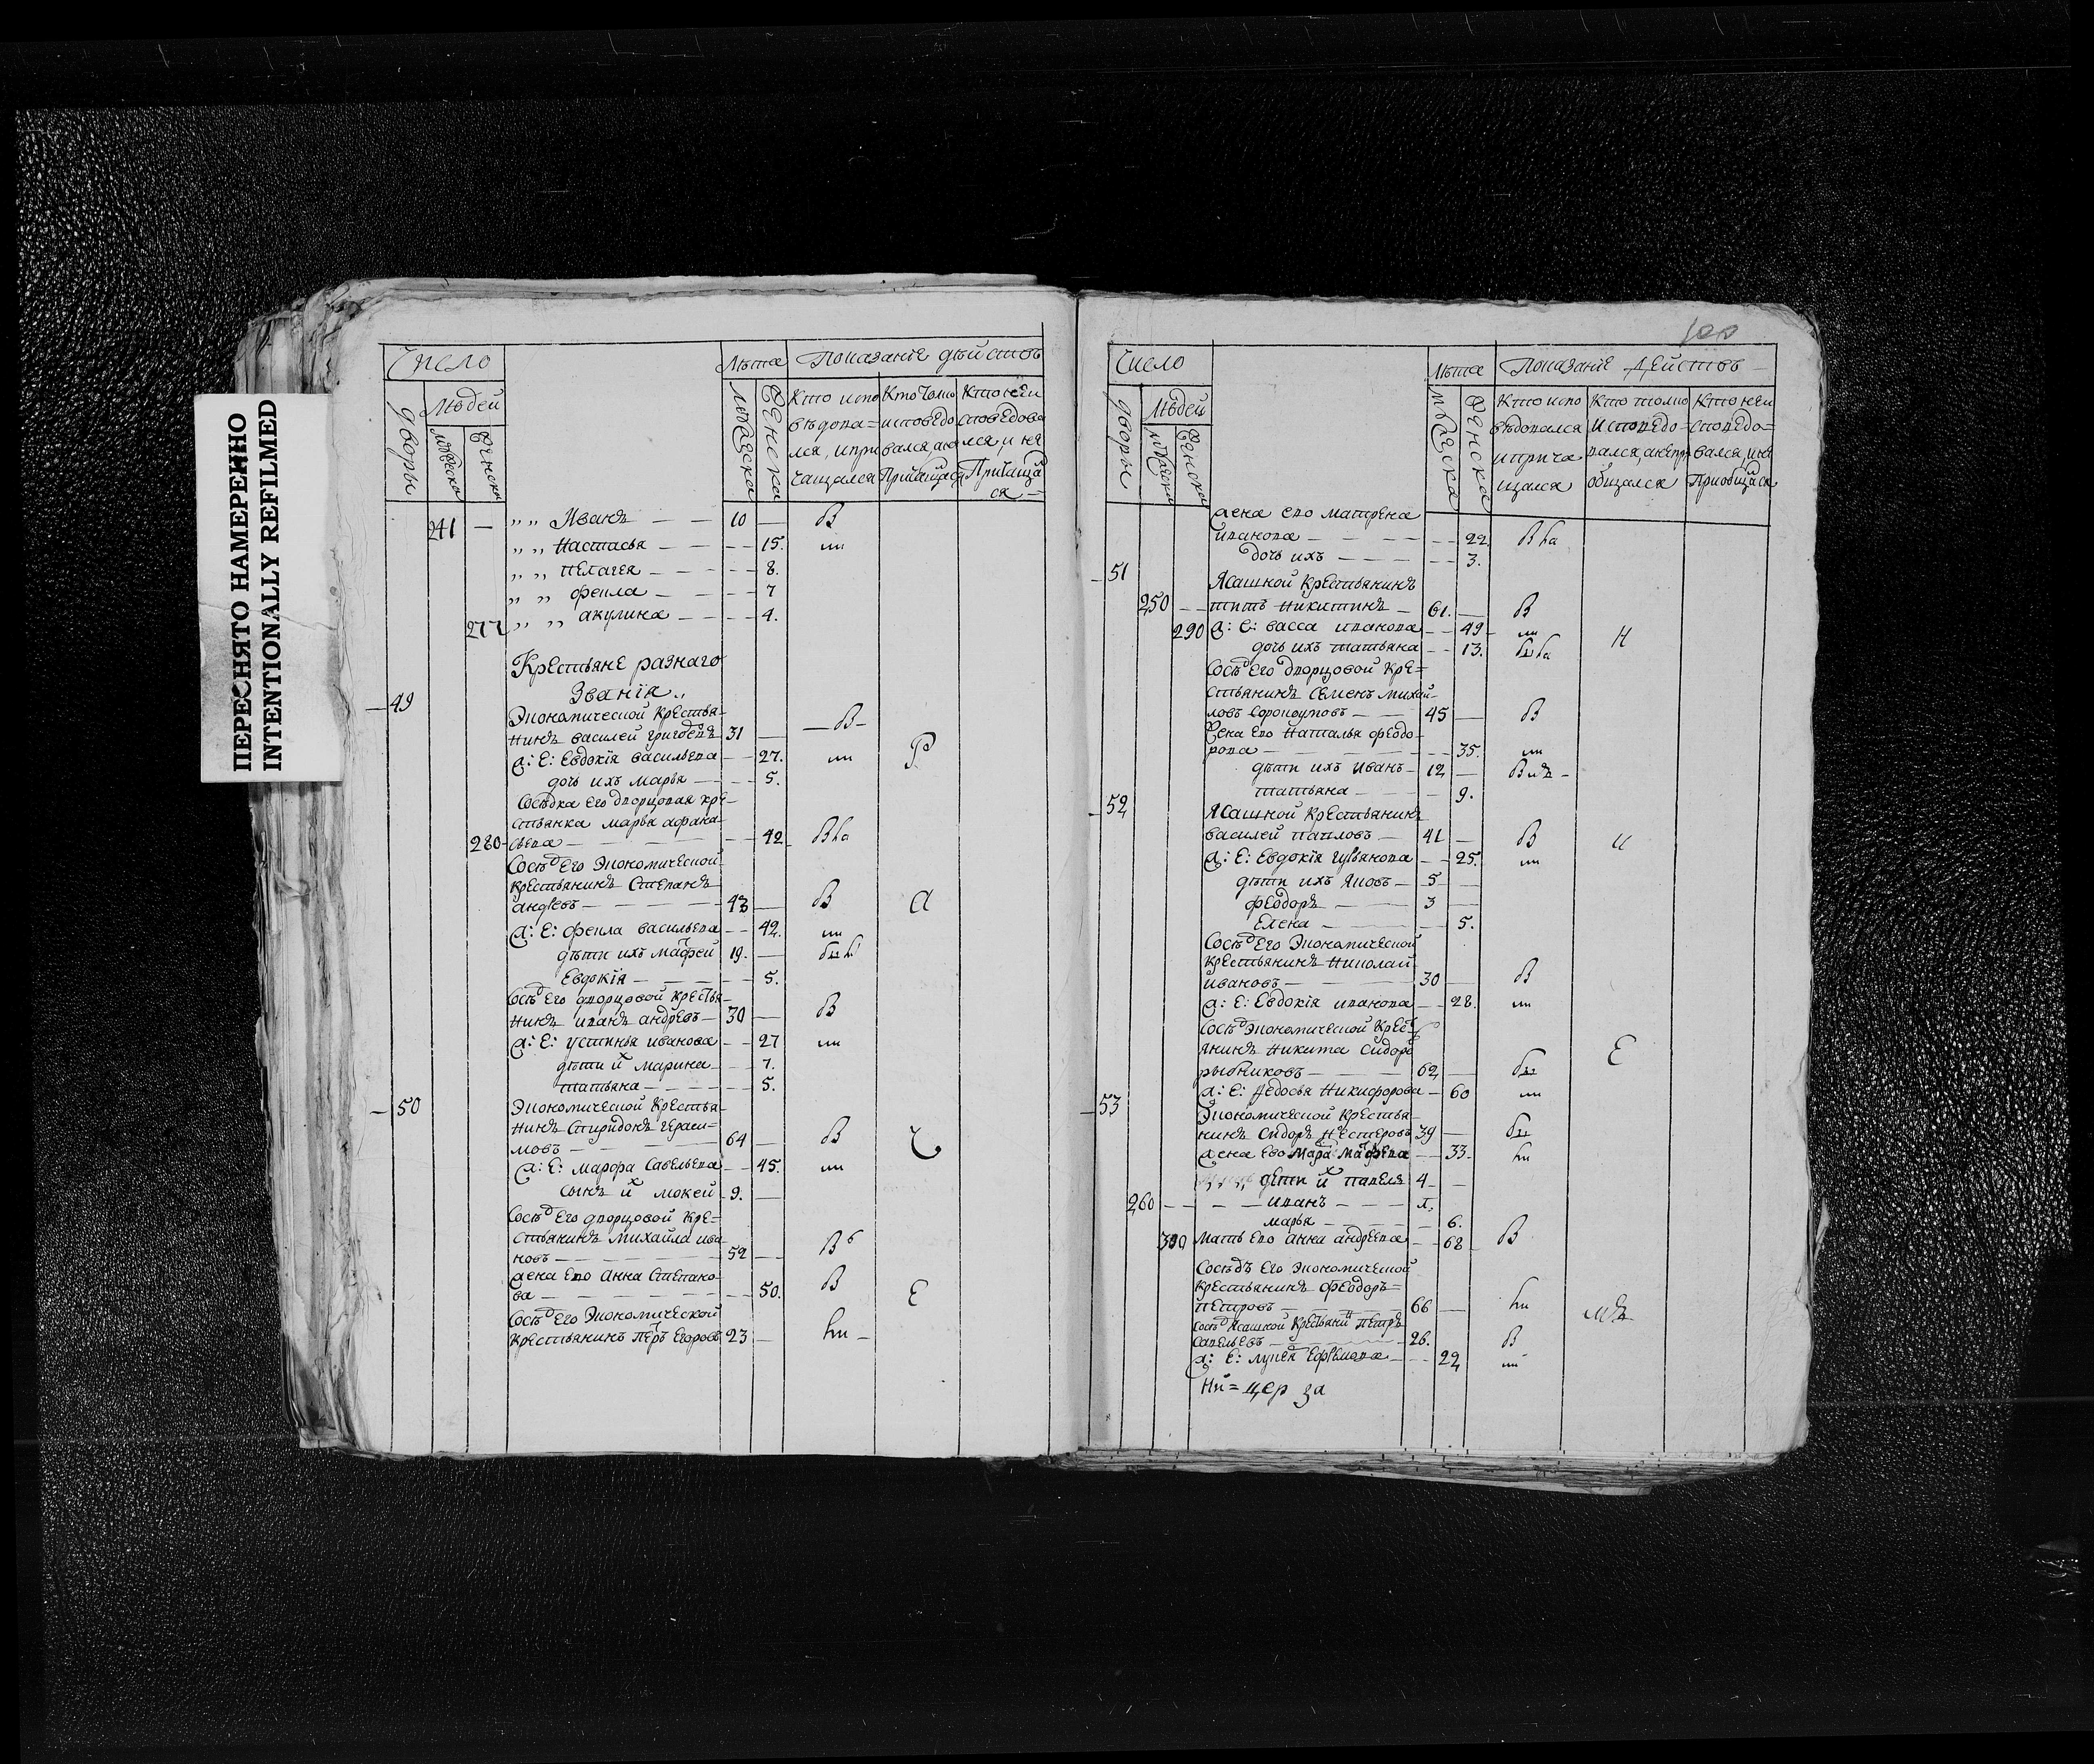 ПЕРЕСНЯТО НАМЕРЕННО
INTENTIONALLY REFILMED
Число
Лѣта
Показаніе дѣйствъ
дворы
Людей
мужеска
женска
мужеска
женска
Кто испо
вѣдова=
лся, и при
чащался
Кто токмо
исповедо
вался, а не
Причащася
Кто неи
споведова
лся, и не
Причаща
ся =
241 — „ „ Иванъ — — 10 — В
„ „ Настасья — — — — 15.
„ „ пелагея — — — — 8.
„ „ фекла — — — — 7
277 „ „ акулина — — — — 4.
Крестьяне разнаго
званїя „
— 49
Экономической крестья-
нинъ василей григорьевъ 31 — — В —
ж: Е: Евдокїя васильева — — 27.
дочь ихъ марья — — — 5.
Р
Сосѣдка его дворцовая кре-
стьянка марья афана-
280 — сьева — — — — 42
Сосѣд его Экономической
крестьянинъ Степанъ
андреевъ — — — 43 — В
а
ж: Е: фекла васильева — — 42.
дѣти ихъ матфей 19. —
Евдокїя — — — — 5.
Сосѣд его дворцовой крестья-
нинъ иванъ андреевъ — 30 — В
ж: Е: устинья иванова — — 27
дѣти их марина — — 7.
татьяна — — — — 5.
— 50
Экономической крестья-
нинъ спиридонъ гераси-
мовъ — — 64 — В
ж: Е: марфа савельева — — 45.
сынъ их мокей — 9. —
Сосѣд его дворцовой кре=
стьянинъ михайла ива
новъ — — — 52 — В
жена его анна степано-
ва — — — — 50. В
Е
Сосѣд его Экономической
крестьянинъ петръ Егоровъ 23 —
100
Число
Лѣта
Показаніе Действъ
дворы
Людей
мужеска
женска
мужеска
женска
Кто испо
вѣдовался
и прича
щался
Кто токмо
исповедо-
вался, а непри
общался
Кто неи
споведо=
вался, и не
Приобщася
жена его матрена
иванова — — — — 22
дочь ихъ — — — 3.
— 51
Ясашной крестьянинъ
250 — — титъ никитинъ — 61. — В
290 ж: Е: васса иванова — — 49
Н
дочь ихъ татьяна — — 13.
Сосѣд его дворцовой кре=
стьянинъ семенъ михай-
ловъ — — 45 — В
жена его наталья феодо-
рова — — — — 35.
дѣти ихъ иванъ — 12 —
татьяна — — — 9.
— 52
Ясашной крестьянинъ
василей павловъ — 41 — В
и
ж: Е: Евдокїя — — 25.
дѣти ихъ яковъ — 5 —
феодоръ — — 3 —
Елена — — — 5.
Сосѣд его Экономической
крестьянинъ николай
ивановъ — — — 30 — В
ж: Е: Евдокїя иванова — — 28.
Сосѣд Экономической крест
янинъ никита сидоровъ
рыбниковъ — — — 62 —
Е
ж: Е: федосья никифорова — 60
— 53
Экономической крестья-
нинъ сидоръ нестеровъ 39 —
жена его марфа матфеева — — 33
дѣти их павелъ 4 —
260 — — — — иванъ — — —
марья — — — — 6.
300 мать его анна андреева — — 68 В
Сосѣдъ его Экономической
крестьянинъ феодоръ =
петровъ — — — 66 —
Сосѣд ясашной крестьянин петръ
савельевъ — — — 26. В
ж: Е: Ефремова — — 22